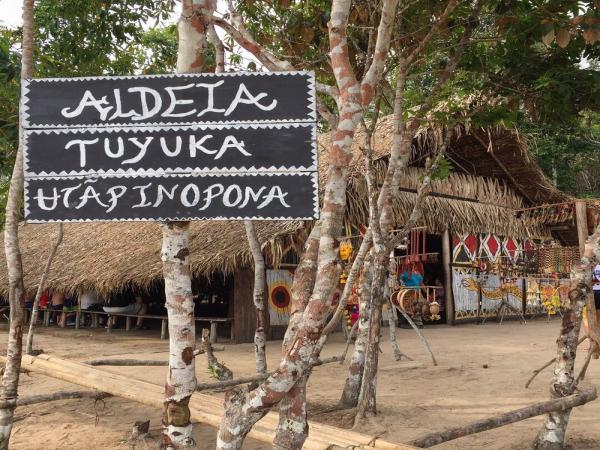 ALDEIA
TUYUKA
UTÃPINOPONA